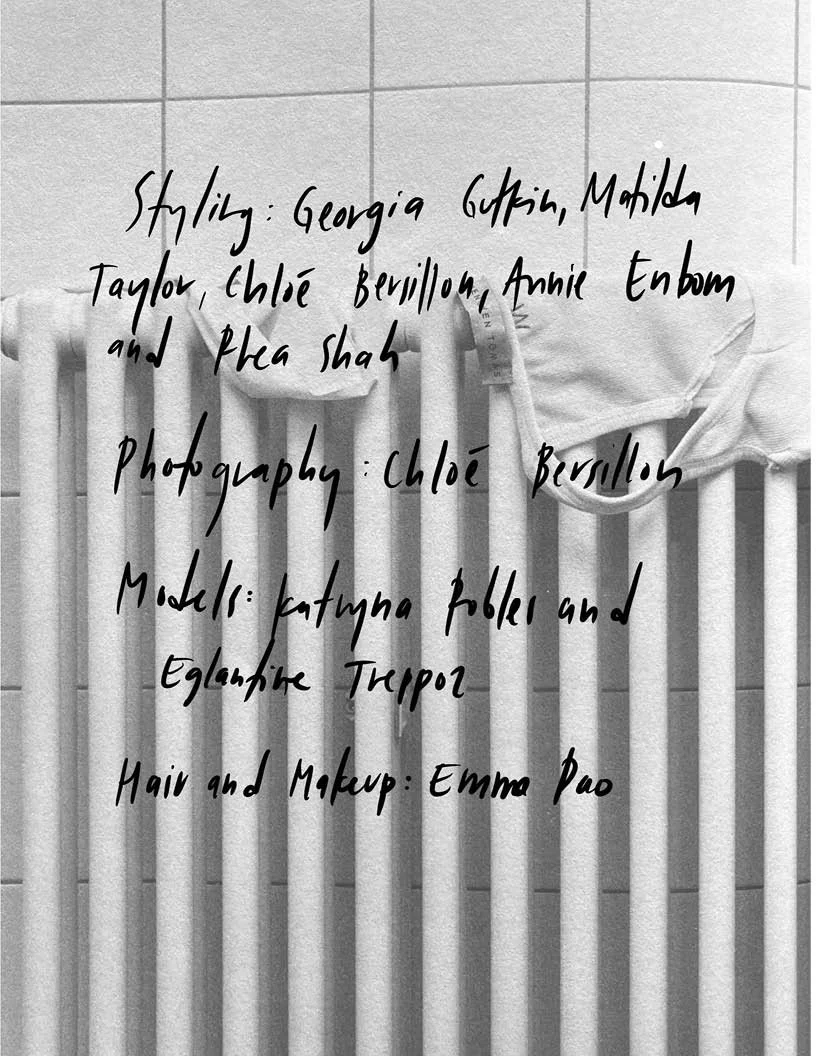 Styling: Georgia Gutkin, Matilda
Taylor, Chloé Bersillon, Annie Enbom
and Rhea Shah
Photography: Chloé Bersillon
Models: Katryna Robles and
Eglantine Treppoz
Hair and Makeup: Emma Dao